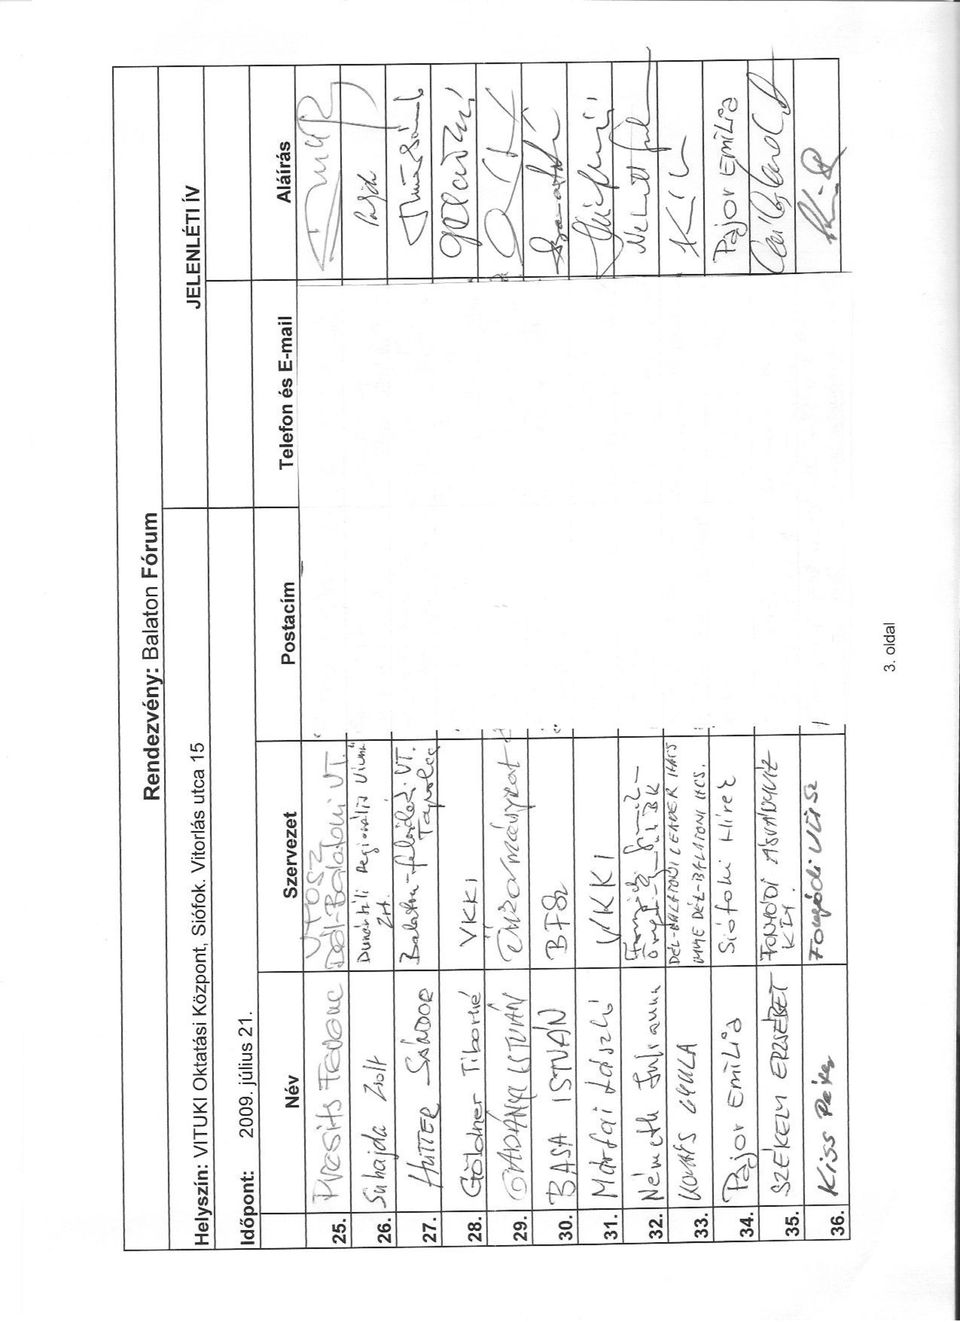 Rendezvény: Balaton Fórum
Helyszín: VITUKI Oktatási Központ, Siófok. Vitorlás utca 15 JELENLÉTI ÍV
Időpont: 2009. július 21.
Név Szervezet Postacím Telefon és E-mail Aláírás
25. Ferenc VTOSZ
Dél-Balatoni VT.
26. Suhajda Zsolt Dunántúli Regionális Vízmű
Zrt.
27. HUTTER SÁNDOR Balaton-felvidéki VT.
Tapolca
28. Göldner Tiborné VKKI
29. ISTVÁN Önkormányzat
30. BASA ISTVÁN BFSZ
31. Márfai László VKKI
32. Németh Julianna
33. KOVÁCS GYULA DÉL-BALATONI LEADER HACS
DÉL-BALATONI HCS.
34. Pajor Emília Siófoki Hírek Pajor Emília
35. SZÉKELY ERZSÉBET FONYÓDI ÁSVÁNYVÍZ
KFT.
36. Kiss Péter Fonyódi
3. oldal